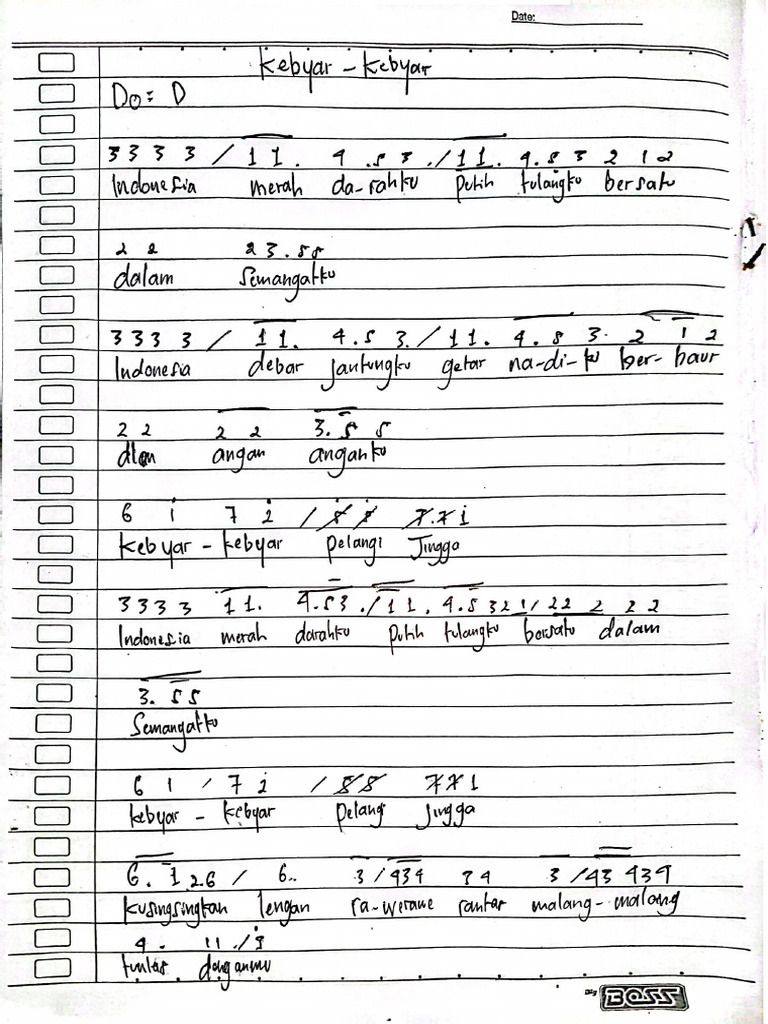 Date:
Kebyar - Kebyar
Do = D
3 3 3 3 / 1 1 . 4 . 5 3 . / 1 1 . 4 . 5 3 2 1 2
Indonesia merah da-rahku putih tulangku bersatu
2 2 2 3 . 5 5
dalam Semangatku
3 3 3 3 / 1 1 . 4 . 5 3 . / 1 1 . 4 . 5 3 . 2 1 2
Indonesia debar jantungku getar na-di-ku ber-baur
2 2 2 2 3 . 5 5
dlm angan anganku
6 i 7 2 / 5 5 7 . 7 i
Kebyar - kebyar pelangi Jingga
3 3 3 3 1 1 . 4 . 5 3 . / 1 1 . 4 . 5 3 2 1 / 2 2 2 2 2
Indonesia merah darahku putih tulangku bersatu dalam
3 . 5 5
Semangatku
6 1 / 7 2 / 5 5 7 7 1
kebyar - kebyar pelangi Jingga
6 . 1 2 6 / 6 . . 3 / 4 3 4 3 4 3 / 4 3 4 3 4
Kusingsingkan lengan ra-werawe rantas malang-malang
4 . 1 1 . /
tuntas denganmu
BOSS